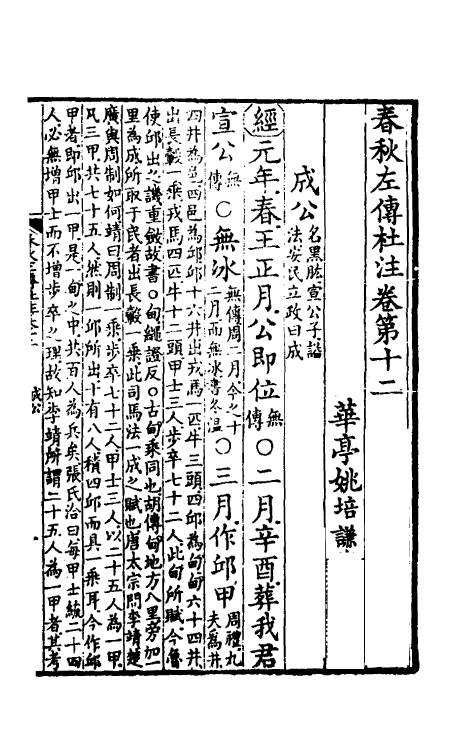 春秋左傳杜注卷第十二
華亭姚培謙
成公名黑肱宣公子謚法安民立政曰成
經元年春王正月公即位無傳○二月辛酉葬我君
宣公無傳○無冰無傳周二月今之十二月而無冰書冬溫○三月作邱甲周禮九夫為井
四井為邑四邑為邱邱十六井出戎馬一匹牛三頭四邱為甸甸六十四井
出長轂一乘戎馬四匹牛十二頭甲士三人步卒七十二人此甸所賦今魯
使邱出之譏重斂故書○甸繩證反○古甸乘同也胡傳甸地方八里旁加一
里為成所取于民者出長轂一乘此司馬法一成之賦也唐太宗問李靖楚
廣與周制如何靖曰周制一乘步卒七十二人甲士三人以二十五人為一甲
凡三甲共七十五人然則一邱所出十有八人積四邱而具一乘耳今作邱
甲者即邱出一甲是一甸之中共百人為兵矣張氏洽曰每甲士統二十四
人必無增甲士而不增步卒之理故知李靖所謂二十五人為一甲者其考
成公